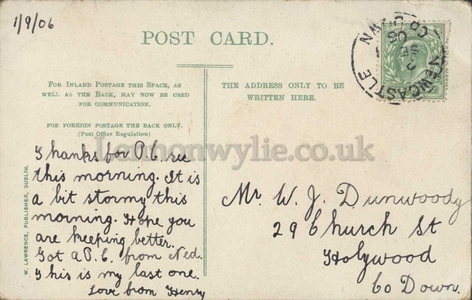 1/9/06
POST CARD.
FOR INLAND POSTAGE THIS SPACE, AS
WELL AS THE BACK, MAY NOW BE USED
FOR COMMUNICATION.
FOR FOREIGN POSTAGE THE BACK ONLY.
(Post Office Regulation)
THE ADDRESS ONLY TO BE
WRITTEN HERE.
NEWCASTLE
CO. DOWN
SP
06
Lennonwylie.co.uk
W. LAWRENCE, PUBLISHER, DUBLIN.
Thanks for P.C. rec
this morning. It is
a bit stormy this
morning. Hope you
are keeping better.
Got a P.C. from Ned.
This is my last one.
Love from Henry
Mr W. J. Dunwoody
29 Church St
Holywood
Co Down.